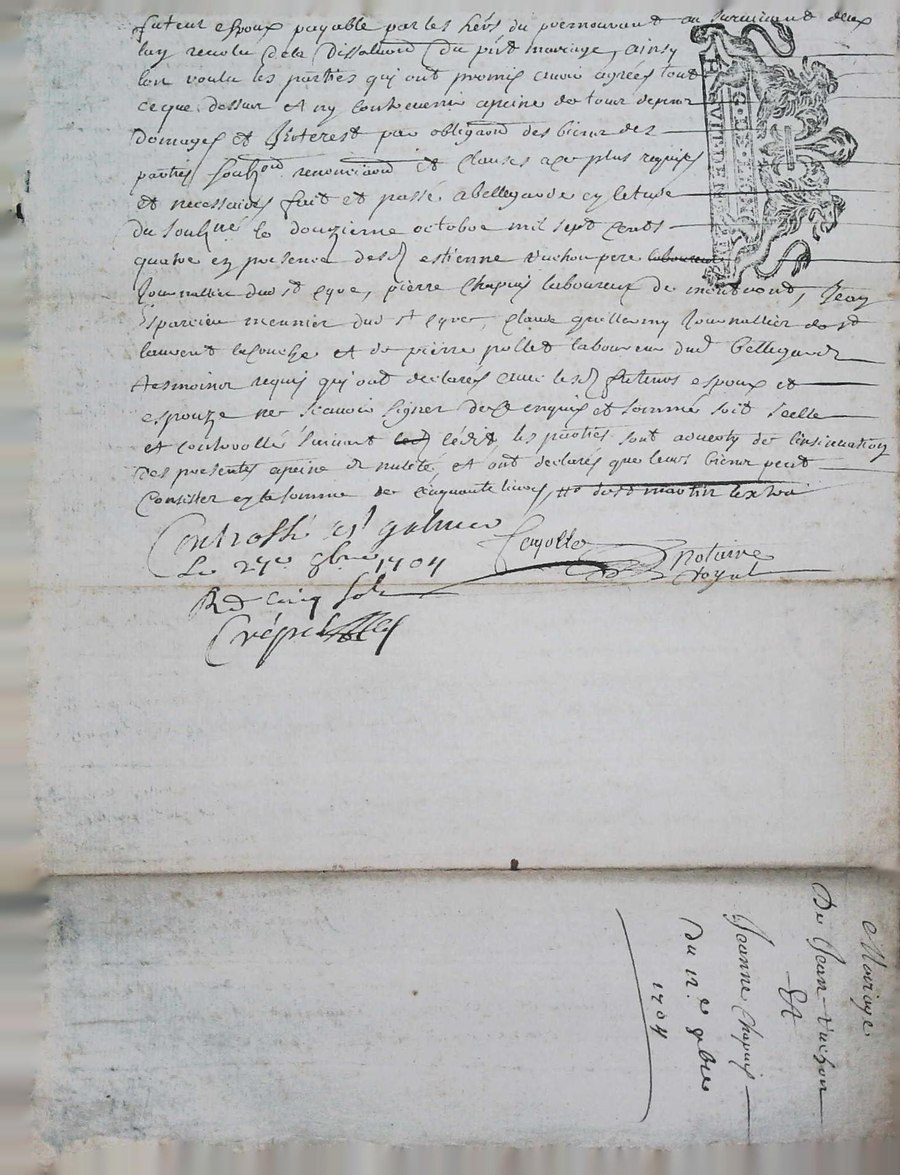 futeur espoux payable par les hérs du premourant au survivant deux
an revolu de la dissolution du pñt mariage, ainsy
lon voulu les parties qui ont promis avoir agrées tout
ce que dessus et ny contrevenir a peine de tous depens
domages et Interest par obligaon des biens des
parties soubzon renonciaon et clauses a ce plus requises
et necessaires fait et passé a bellegarde en letude
du soubzné le douzieme octobre mil sept cents
quatre en presence desd estienne vachon pere laboureur
Journallier dud st cyre, pierre Chapuis laboureux de montrond, Jean
meunier dud st cyre, Claude guillermy Journallier de st
laurent la couche et de pierre pollet laboureur dud bellegarde
tesmoins requis qui ont declarés avec lesd futeurs espoux et
espouze ne scavoir signer de ce enquis et sommé soit scelle
et controollé suivant led lédit, les parties sont adverty de linsinuation
des presentes a peine de nuleté et ont declarés que leurs biens peut
Consister en la somme de cinquante livres,
Controllé a st galmier
Le 24e 8bre 1704
notaire
Royal
Rd cinq sols
H VIT DEN
G. E. LION
Mariage
De Jean vachon
Et
Jeanne Chapuis
du 12.e 8bre
1704